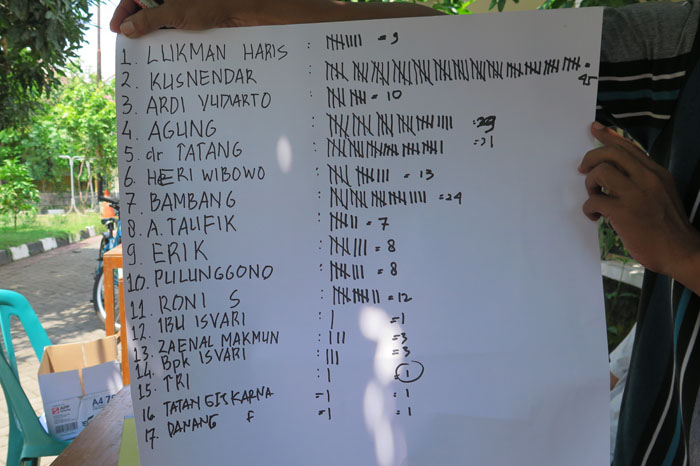 1. LUKMAN HARIS : = 9
2. KUSNENDAR : = 45
3. ARDI YUDIARTO : = 10
4. AGUNG : = 29
5. dr TATANG : = 21
6. HERI WIBOWO : = 13
7. BAMBANG : = 24
8. A. TAUFIK : = 7
9. ERIK : = 8
10. PULUNGGONO : = 8
11. RONI S : = 12
12. IBU ISVARI : | = 1
13. ZAENAL MAKMUN : ||| = 3
14. Bpk ISVARI : ||| = 3
15. TRI : | = 1
16 TATANG ISKARNA = | = 1
17. DANANG F = | = 1
A4